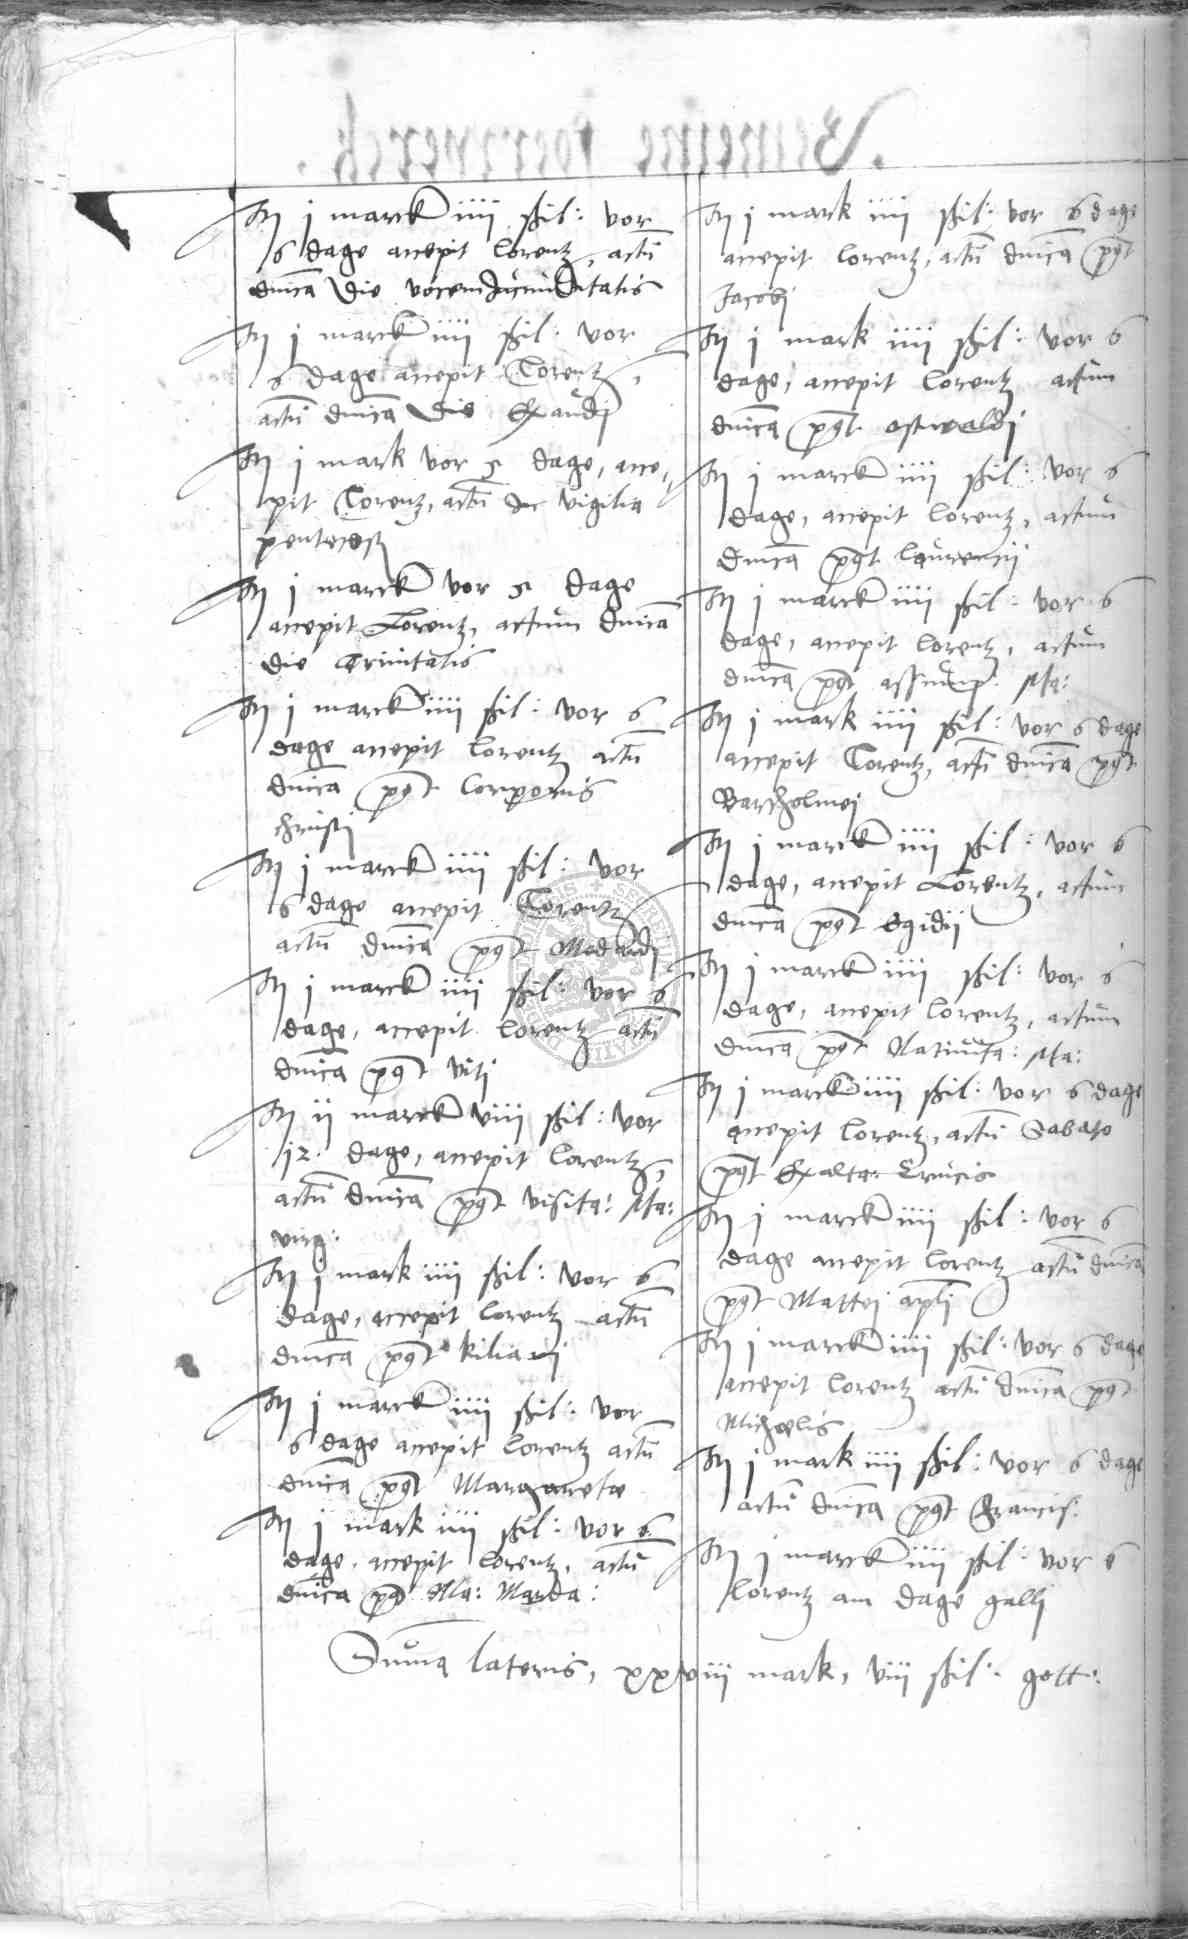 Itj j marck iiij ßil: vor
6 dage accepit Lorentz, actū
dnīca die vocem Jucunditatis
Itj j marck iiij ßil: vor
6 dage accepit Lorentz,
actū dnīca die Exaudj
Itj j mark vor 5 dage, acce,
pit Lorentz, actū in vigilia
pentecost
Itj j marck vor 5 dage
accepit Lorentz, actum dnīca
die Trinitatis
Itj j marck iiij ßil: vor 6
dage accepit Lorentz actū
dnīca post Corporis
christj
Itj j marck iiij ßil: vor
6 dage accepit Lorentz
actū dnīca post Medardj
Itj j marck iiij ßil: vor 6
dage, accepit Lorentz actū
dnīca post vitj
Itj ij marck viij ßil: vor
12. dage, accepit Lorentz,
actū dnīca post visita: Ma:
virg:
Itj j mark iiij ßil: vor 6
dage, accepit Lorentz actū
dnīca post kilianj
Itj j marck iiij ßil: vor
6 dage accepit Lorentz actū
dnīca post Margarete
Itj j mark iiij ßil: vor 6
dage, accepit Lorentz, actū
dnīca post Ma: Magda:
Itj j mark iiij ßil: vor 6 dage
accepit Lorentz, actū dnīca post
Jacobj
Itj j mark iiij ßil: vor 6
dage, accepit Lorentz actum
dnīca post ostwaldj
Itj j marck iiij ßil: vor 6
dage, accepit Lorentz, actum
dnīca post laurencij
Itj j marck iiij ßil: vor 6
dage, accepit Lorentz, actum
dnīca post assump: Ma:
Itj j mark iiij ßil: vor 6 dage
accepit Lorentz, actū dnīca post
Bartholmej
Itj j marck iiij ßil: vor 6
dage, accepit Lorentz, actum
dnīca post Egidij
Itj j marck iiij ßil: vor 6
dage, accepit Lorentz, actum
dnīca post Natiuita: Ma:
Itj j marck iiij ßil: vor 6 dage
accepit Lorentz, actū Sabato
post Exalta: Crucis
Itj j marck iiij ßil: vor 6
dage accepit Lorentz actū dnīca
post Mattej apl̄j
Itj j marck iiij ßil: vor 6 dage
accepit Lorentz actū dnīca post
Michaelis
Itj j mark iiij ßil: vor 6 dage
actū dnīca post Francis:
Itj j marck iiij ßil: vor 6
Lorentz am dage gallj
Suma lateris, xxviij mark, viij ßil: gott: